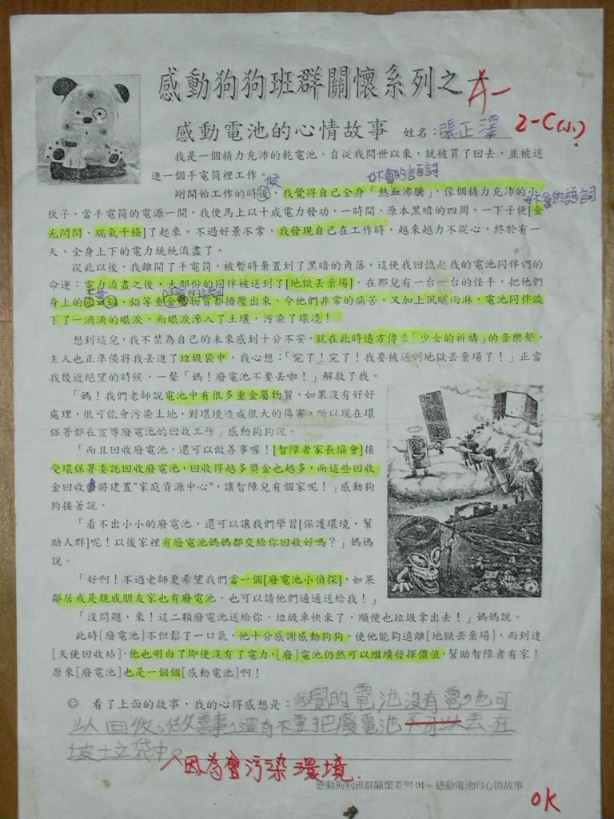 感動狗狗班群關懷系列之
感動電池的心情故事 姓名：張正潔
2-C
我是一個精力充沛的乾電池，自從我問世以來，就被買了回去，並被送
進一個手電筒裡工作。
不會的語詞
剛開始工作的時候，我覺得自己全身「熱血沸騰」，像個精力充沛的小
不會的語詞
伙子，當手電筒的電源一開，我便馬上以十成電力發動，一時間，原本黑暗的四周，一下子便[金
光閃閃，瑞氣千條]了起來。不過好景不常，我發現自己在工作時，越來越力不從心，終於有一
天，全身上下的電力統統流盡了。
從此以後，我離開了手電筒，被暫時棄置到了黑暗的角落，這使我回憶起我的電池同伴們的
命運：電力流盡之後，大部份的同伴被送到[地獄丟棄場]，在那兒有一台一台的怪手，把他們
身上的 鉛等重金屬物質都擠壓出來，令他們非常的痛苦，又加上風曬雨淋，電池同伴流
下了一滴滴的眼淚，而眼淚滲入了土壤，污染了環境！
想到這兒，我不禁為自己的未來感到十分不安，就在此時遠方傳來「少女的祈禱」的音樂聲，
主人也正準備將我丟進了垃圾袋中，我心想：「完了！完了！我要被送到地獄丟棄場了！」正當
我幾近絕望的時候，一聲「媽！廢電池不要丟啦！」解救了我。
「媽！我們老師說電池中有很多重金屬物質，如果沒有好好
處理，很可能會污染土地，對環境造成很大的傷害，所以現在環
保署都在宣導廢電池的回收工作」感動狗狗說。
「而且回收廢電池，還可以做善事喔！[智障者家長協會]接
受環保署委託回收廢電池，回收得越多獎金也越多，而這些回收
金回收將建置"家庭資源中心"，讓智障兒有個家呢！」感動狗
狗接著說。
「看不出小小的廢電池，還可以讓我們學習[保護環境、幫
助人群]呢！以後家裡有廢電池媽媽都交給你回收好嗎？」媽媽
說。
「好啊！不過老師更希望我們當一個[廢電池小偵探]，如果
鄰居或是親戚朋友家也有廢電池，也可以請他們通通送給我！」
「沒問題，來！這二顆廢電池送給你，垃圾車快來了，順便也垃圾拿出去！」媽媽說。
此時[廢電池]不但鬆了一口氣，他十分感謝感動狗狗，使他能夠遠離[地獄丟棄場]，而到達
[天使回收站]，他也明白了即使沒有了電力，[廢]電池仍然可以繼續發揮價值，幫助智障者有家！
原來[廢電池]也是一個個[感動電池]啊！
☺ 看了上面的故事，我的心得感想是：我覺的電池沒有電也可
以回收做善事，還有不要把廢電池丟在
垃圾袋中。
因為會污染環境
感動狗狗班群關懷系列01－感動電池的心情故事
OK